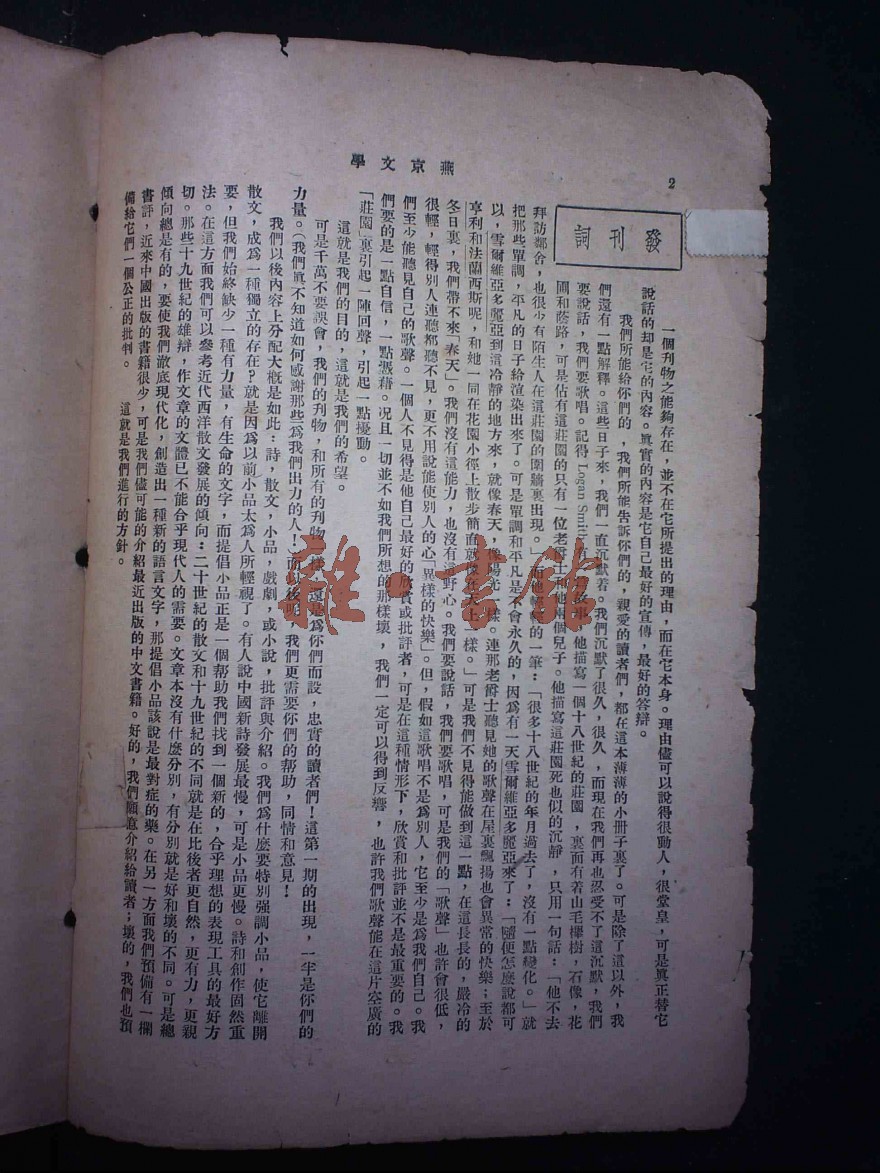 燕京文學
2
發刊詞
一個刊物之能夠存在，並不在它所提出的理由，而在它本身。理由儘可以說得很動人，很堂皇，可是眞正替它
說話的却是它的內容。眞實的內容是它自己最好的宣傳，最好的答辯。
我們所能給你們的，我們所能告訴你們的，親愛的讀者們，都在這本薄薄的小冊子裏了。可是除了這以外，我
們還有一點解釋。這些日子來，我們一直沉默着。我們沉默了很久，很久，而現在我們再也忍受不了這沉默，我們
要說話，我們要歌唱。記得 Logan Smith 有一篇故事，他描寫一個十八世紀的莊園，裏面有着山毛櫸樹，石像，花
園和蔭路，可是佔有這莊園的只有一位老爵士和他兩個兒子。他描寫這莊園死也似的沉靜，只用一句話：「他不去
拜訪鄰舍，也很少有陌生人在這莊園的圍牆裏出現。」而他輕輕的一筆：「很多十八世紀的年月過去了，沒有一點變化。」就
把那些單調，平凡的日子給渲染出來了。可是單調和平凡是不會永久的，因爲有一天雪爾維亞多麗亞來了：「隨便怎麼說都可
以，雪爾維亞多麗亞到這冷靜的地方來，就像春天，像陽光一樣。連那老爵士聽見她的歌聲在屋裏飄揚也會異常的快樂；至於
亨利和法蘭西斯呢，和她一同在花園小徑上散步簡直就像在天上一樣。」可是我們不見得能做到這一點，在這長長的，嚴冷的
冬日裏，我們帶不來「春天」。我們沒有這能力，也沒有這野心。我們要說話，我們要歌唱，可是我們的「歌聲」也許會很低，
很輕，輕得別人連聽都聽不見，更不用說能使別人的心「異樣的快樂」。但，假如這歌唱不是爲別人，它至少是爲我們自己。我
們至少能聽見自己的歌聲。一個人不見得是他自己最好的欣賞或批評者，可是在這種情形下，欣賞和批評並不是最重要的。我
們要的是一點自信，一點憑藉。况且一切並不如我們所想的那樣壞，我們一定可以得到反響，也許我們歌聲能在這片空廣的
「莊園」裏引起一陣回聲，引起一點擾動。
這就是我們的目的，這就是我們的希望。
可是千萬不要誤會，我們的刊物，和所有的刊物一樣，還是爲你們而設，忠實的讀者們！這第一期的出現，一半是你們的
力量。（我們眞不知道如何感謝那些爲我們出力的人！）而以後呢，我們更需要你們的帮助，同情和意見！
我們以後內容上分配大概是如此：詩，散文，小品，戲劇，或小說，批評與介紹。我們爲什麼要特別强調小品，使它離開
散文，成爲一種獨立的存在？就是因爲以前小品太爲人所輕視了。有人說中國新詩發展最慢，可是小品更慢。詩和創作固然重
要，但我們始終缺少一種有力量，有生命的文字，而提倡小品正是一個帮助我們找到一個新的，合乎理想的表現工具的最好方
法。在這方面我們可以參考近代西洋散文發展的傾向：二十世紀的散文和十九世紀的不同就是在比後者更自然，更有力，更親
切。那些十九世紀的雄辯，作文章的文體已不能合乎現代人的需要。文章本沒有什麼分別，有分別就是好和壞的不同。可是總
傾向總是有的，要使我們澈底現代化，創造出一種新的語言文字，那提倡小品該說是最對症的藥。在另一方面我們預備有一欄
書評，近來中國出版的書籍很少，可是我們儘可能的介紹最近出版的中文書籍。好的，我們願意介紹給讀者；壞的，我們也預
備給它們一個公正的批判。　這就是我們進行的方針。
雜·書館